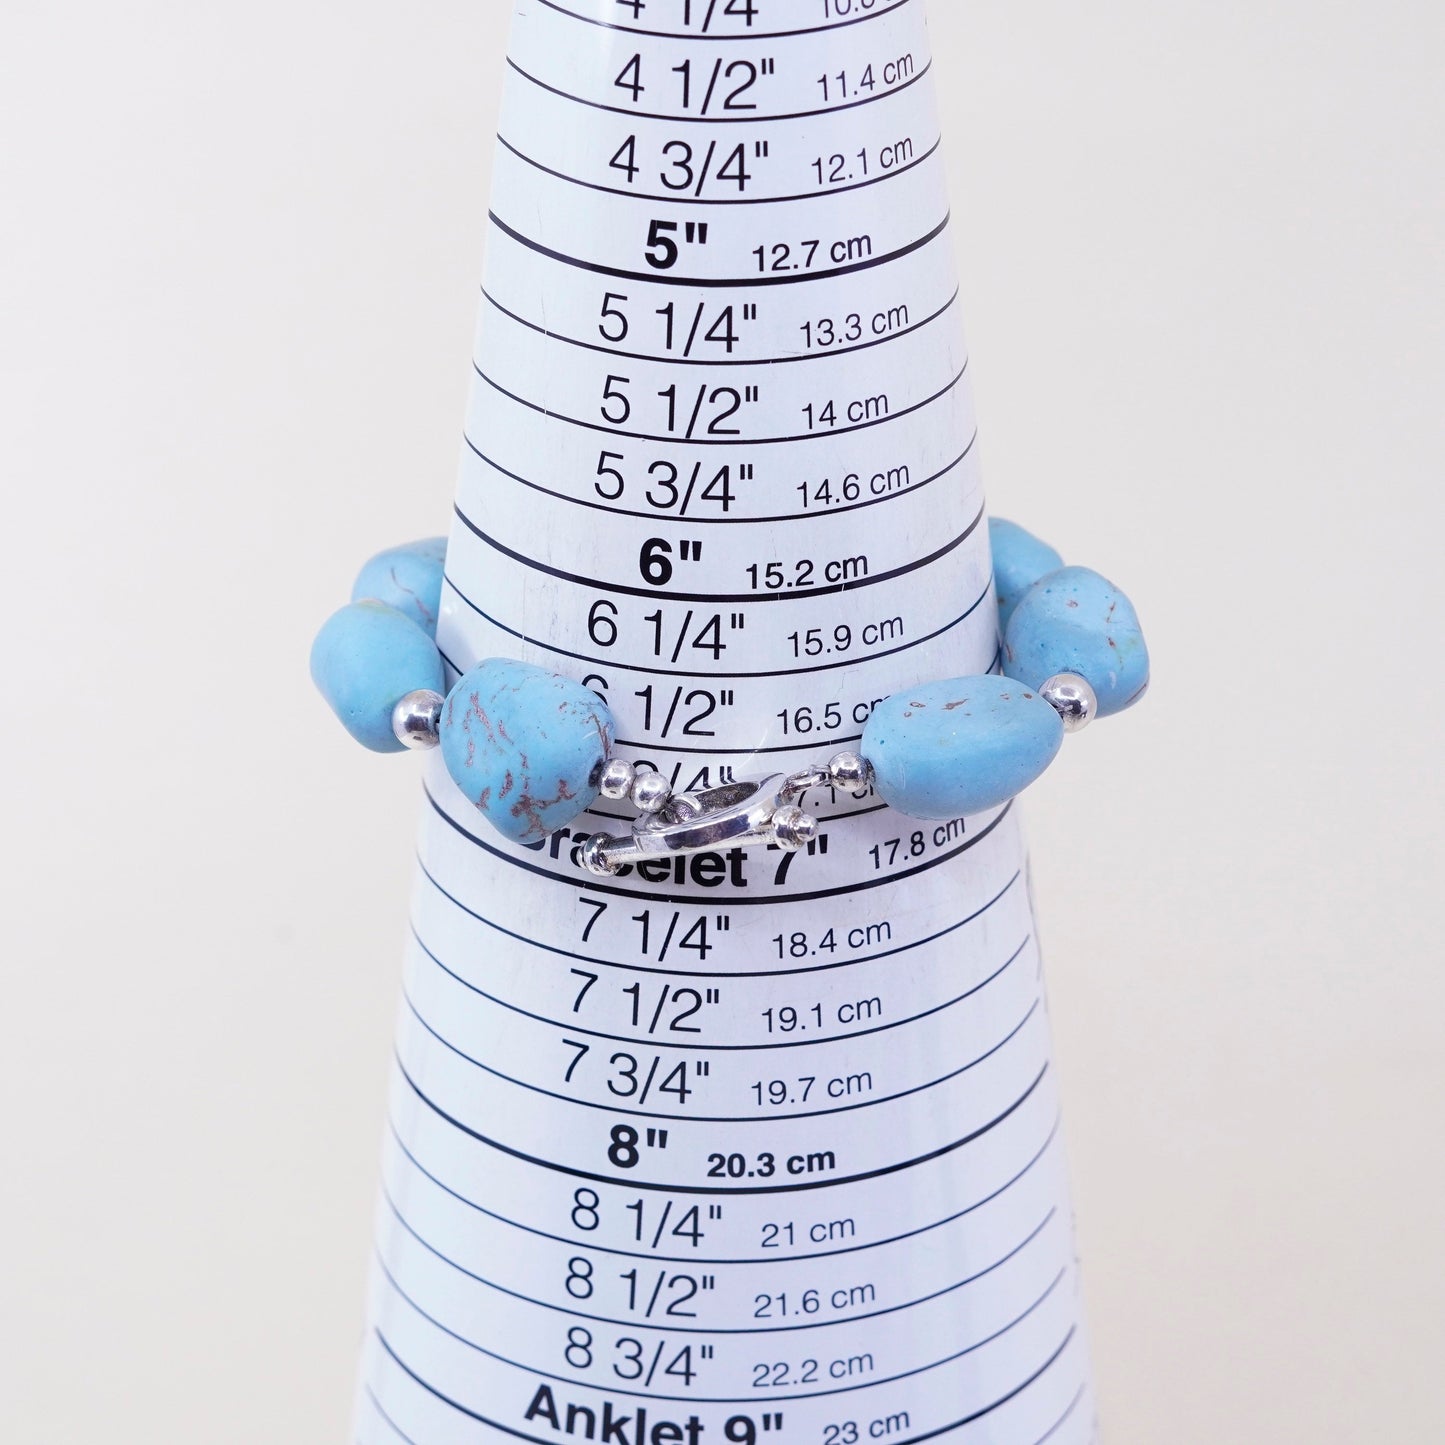 4 1/4"
4 1/2" 11.4 cm
4 3/4" 12.1 cm
5" 12.7 cm
5 1/4" 13.3 cm
5 1/2" 14 cm
5 3/4" 14.6 cm
6" 15.2 cm
6 1/4" 15.9 cm
6 1/2" 16.5 cm
3/4" 17.1 cm
Bracelet 7" 17.8 cm
7 1/4" 18.4 cm
7 1/2" 19.1 cm
7 3/4" 19.7 cm
8" 20.3 cm
8 1/4" 21 cm
8 1/2" 21.6 cm
8 3/4" 22.2 cm
Anklet 9" 23 cm